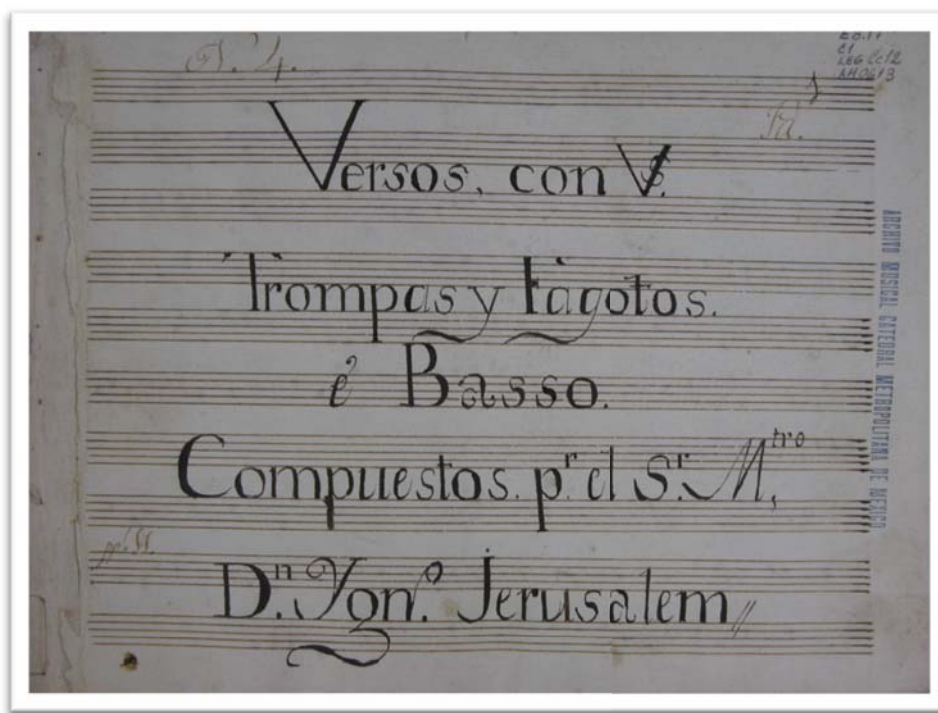 N. 4.
E8.11
C1
LEG Cc12
AM0613
Versos, con Vs.
Trompas y Fagotos.
é Basso.
Compuestos. pr. el Sr. Mtro,
Dn. Ygno. Jerusalem//
ARCHIVO MUSICAL CATEDRAL METROPOLITANA DE MEXICO